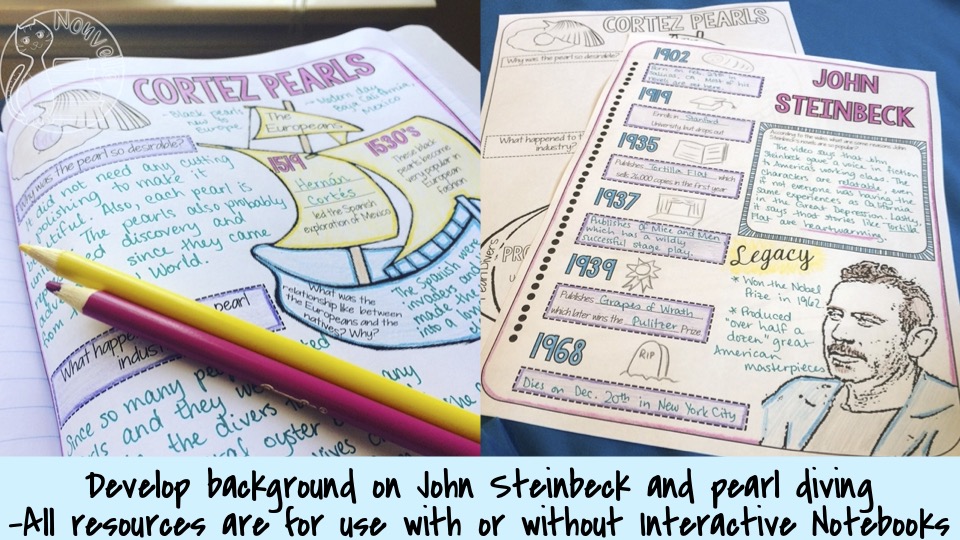 Nouve
CORTEZ PEARLS
Why was the pearl so desirable?
did not need any cutting
polishing to make it
Also, each pearl is
The pearls also probably
discovery and
since they came
World.
Black pearls
Europe
Modern day
Baja California,
Mexico
The
Europeans
1519
Hernán
Cortés
led the Spanish
exploration of Mexico
1530's
These black
pearls become
very popular in
European
fashion
What was the
relationship like between
the Europeans and the
natives? Why?
The Spanish were
invaders and
made the
into a
What happe
pearl
indus
Since so many pe
any
and they we
the divers
oyster
CORTEZ PEARLS
Why was the pearl so desirable?
What happened to t
industry?
Pearl Divers
PRO
JOHN
STEINBECK
1902
Born on Feb. 27th in
Salinas, CA. Most of his
novels are set here.
1919
Enrolls in Stanford
University but drops out
1935
Publishes Tortilla Flat, which
sells 26,000 copies in the first year
1937
Publishes Of Mice and Men,
which has a wildly
successful stage play.
1939
Publishes Grapes of Wrath
which later wins the Pulitzer Prize
1968
RIP
Dies on Dec. 20th in New York City
According to the video, what are some reasons John
Steinbeck's novels are so popular?
The video says that John
Steinbeck gave a voice in fiction
to America's working class. The
characters are relatable, even
if not everyone was having the
same experiences as during
the Great Depression. Lastly,
it says that stories like Tortilla
Flat are heartwarming.
Legacy
* Won the Nobel
Prize in 1962
* Produced
"over half a
dozen" great
American
masterpieces
Develop background on John Steinbeck and pearl diving
-All resources are for use with or without Interactive Notebooks